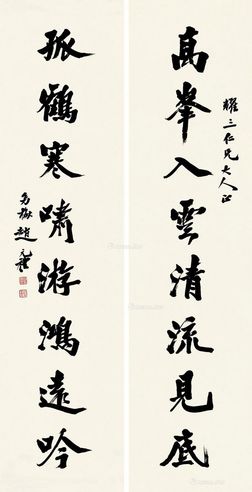 耀三仁兄大人正
高峯入雲清流見底
孤鶴寒嘯游鴻遠吟
趙元